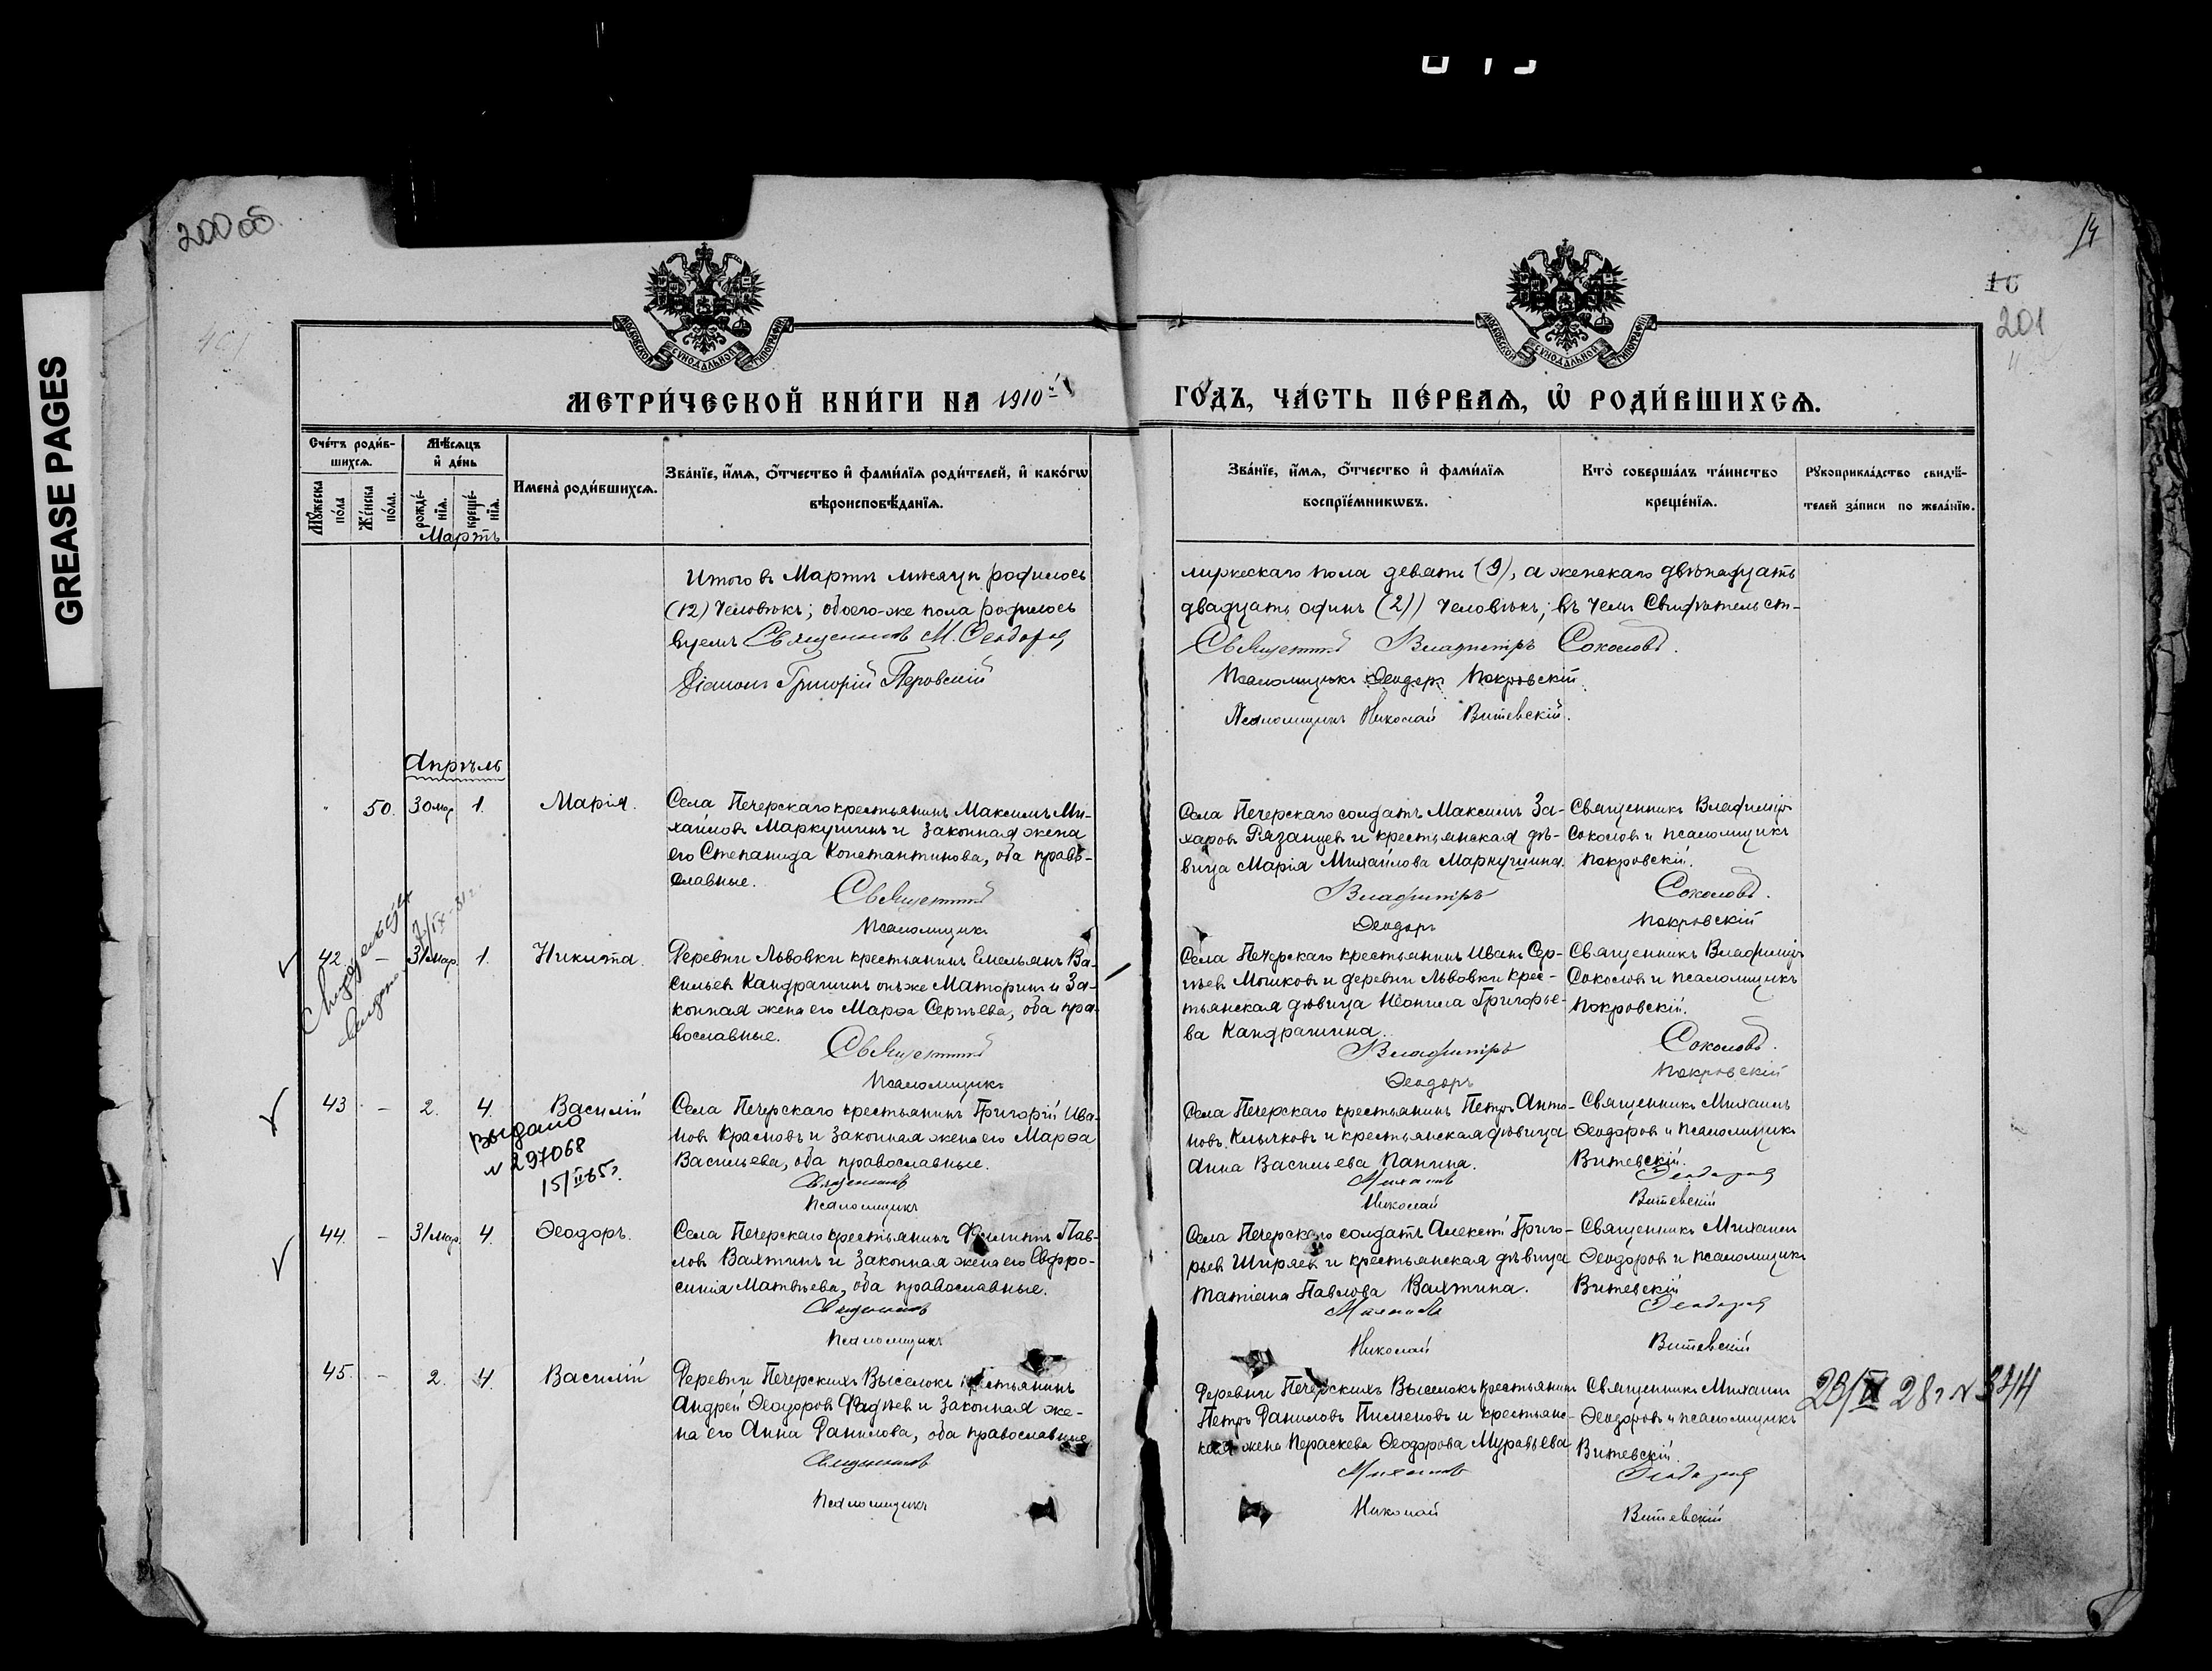 GREASE PAGES
200 об.
14
10
201
МОСКОВСКОЙ СѴНОДАЛЬНОЙ ТИПОГРАФІИ
МОСКОВСКОЙ СѴНОДАЛЬНОЙ ТИПОГРАФІИ
МЕТРИ́ЧЕСКОЙ КНИ́ГИ НА 1910й
ГО́ДЪ, ЧА́СТЬ ПЕ́РВАѦ, Ѽ РОДИ́ВШИХСѦ.
Сче́тъ роди́в-
шихсѧ.
Мѣ́сѧцъ
и҆ де́нь
Мꙋ́жеска
по́ла
Же́нска
по́ла.
рожде́-
нїѧ.
креще́-
нїѧ.
Имена̀ роди́вшихсѧ.
Зва́нїе, и҆́мѧ, ѻ҆́тчество и҆ фами́лїѧ роди́телей, и҆ како́гѡ
вѣроисповѣ́данїѧ.
Зва́нїе, и҆́мѧ, ѻ҆́тчество и҆ фами́лїѧ
воспрїе́мникѡвъ.
Кто̀ соверша́лъ та́инство
креще́нїѧ.
Рꙋкоприкла́дство свидѣ́-
телей за́писи по жела́нїю.
Мартъ
Итого въ Мартѣ мѣсяцѣ родилось
(12) человѣкъ; обоего-же пола родилось
вуемъ Священникъ М. Ѳеодоровъ
Діаконъ Григорій Перовскій
мужескаго пола девять (9), а женскаго двѣнадцать
двадцать одинъ (21) человѣкъ; въ чемъ Свидѣтельст-
Священникъ Владимiръ Соколовъ.
Псаломщикъ Ѳеодоръ Покровскій.
Псаломщикъ Николай Витевскій.
Апрѣль
50. 30 мар. 1. Марія.
Села Печерскаго крестьянинъ Максимъ Ми-
хайловъ Маркушинъ и законная жена
его Степанида Константинова, оба право-
славные.
Священникъ
Псаломщикъ
Села Печерскаго солдатъ Максимъ За-
харовъ Рязанцевъ и крестьянская дѣ-
вица Марія Михайлова Маркушина.
Владимiръ
Ѳеодоръ
Священникъ Владиміръ
Соколовъ и псаломщикъ
Покровскій.
Соколовъ.
Покровскій
42 – 31 мар. 1. Никита.
7/IX-31 г.
Деревни Львовки крестьянинъ Емельянъ Ва-
сильевъ Кандрашинъ онъ же Маторинъ и за-
конная жена его Марѳа Сергѣева, оба пра-
вославные.
Священникъ
Псаломщикъ
Села Печерскаго крестьянинъ Иванъ Сер-
гѣевъ Мошковъ и деревни Львовки крес-
тьянская дѣвица Неонила Григорье-
ва Кандрашина.
Владимiръ
Ѳеодоръ
Священникъ Владиміръ
Соколовъ и псаломщикъ
Покровскій.
Соколовъ.
Покровскій
43 – 2. 4. Василій
Выдано
№ 297068
15/II 65 г.
Села Печерскаго крестьянинъ Григорій Ива-
новъ Красновъ и законная жена его Марѳа
Васильева, оба православные.
Священникъ
Псаломщикъ
Села Печерскаго крестьянинъ Петръ Анто-
новъ Клычковъ и крестьянская дѣвица
Анна Васильева Панина.
Михаилъ
Николай
Священникъ Михаилъ
Ѳеодоровъ и псаломщикъ
Витевскій.
Ѳеодоровъ
Витевскій
44. – 31 мар. 4. Ѳеодоръ.
Села Печерскаго крестьянинъ Филиппъ Пав-
ловъ Вахтинъ и законная жена его Евфро-
синія Матвѣева, оба православные.
Священникъ
Псаломщикъ
Села Печерскаго солдатъ Алексѣй Григо-
рьевъ Ширяевъ и крестьянская дѣвица
Татіана Павлова Вахтина.
Михаилъ
Николай
Священникъ Михаилъ
Ѳеодоровъ и псаломщикъ
Витевскій
Ѳеодоровъ
Витевскій
45. – 2. 4. Василій
Деревни Печерскихъ Выселокъ крестьянинъ
Андрей Ѳеодоровъ Фадѣевъ и законная же-
на его Анна Данилова, оба православные
Священникъ
Псаломщикъ
Деревни Печерскихъ Выселокъ крестьянинъ
Петръ Даниловъ Пименовъ и крестьянс-
кая жена Параскева Ѳеодорова Муравьева
Михаилъ
Николай
Священникъ Михаилъ
Ѳеодоровъ и псаломщикъ
Витевскій.
Ѳеодоровъ
Витевскій